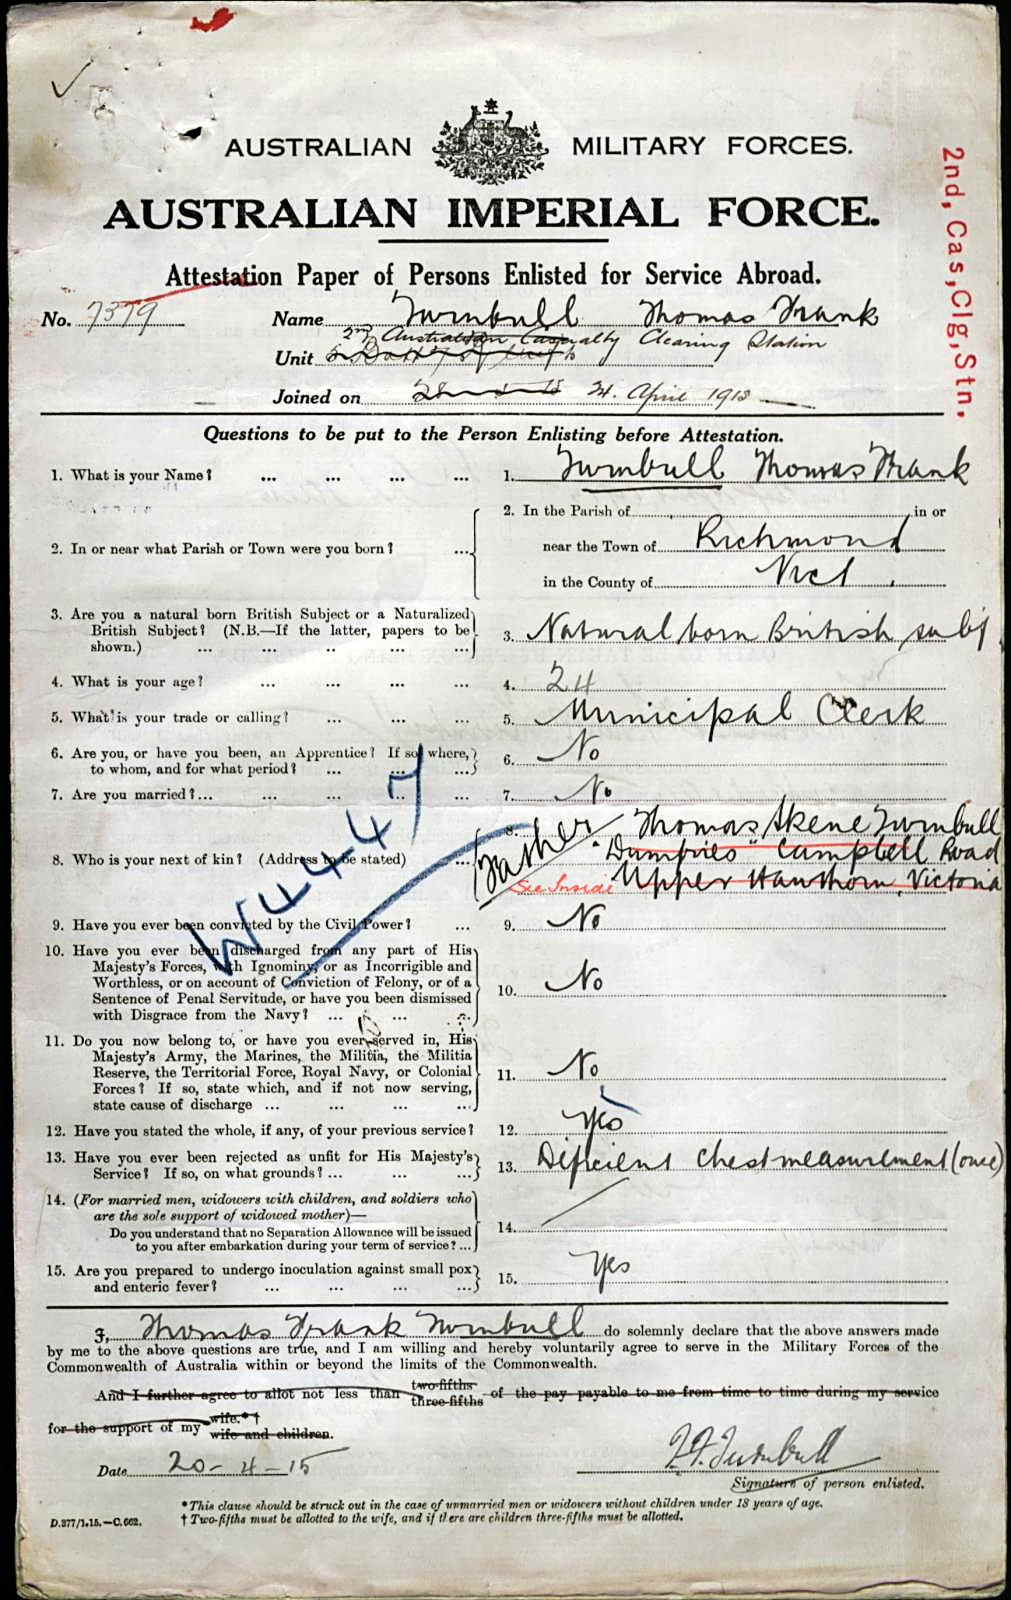 AUSTRALIAN MILITARY FORCES.
AUSTRALIAN IMPERIAL FORCE.
2nd, Cas, Clg, Stn.
Attestation Paper of Persons Enlisted for Service Abroad.
No. 7379 Name Turnbull Thomas Frank
2nd Australian Casualty Clearing Station
Unit
Joined on 24. April 1915
Questions to be put to the Person Enlisting before Attestation.
1. What is your Name? ... ... ... ... 1. Turnbull Thomas Frank
2. In the Parish of , in or
2. In or near what Parish or Town were you born? ... near the Town of Richmond
in the County of Vict.
3. Are you a natural born British Subject or a Naturalized
British Subject? (N.B.—If the latter, papers to be 3. Natural born British subj
shown.) ... ... .. ... ...
4. What is your age? ... ... ... ... 4. 24
5. What is your trade or calling? ... ... ... 5. Municipal Clerk
6. Are you, or have you been, an Apprentice? If so, where,
to whom, and for what period? ... ... ... 6. No
7. Are you married?... ... ... ... ... 7. No
8. Thomas Skene Turnbull
8. Who is your next of kin? (Address to be stated) ... Father "Dumfries" Campbell Road
See Inside Upper Hawthorn, Victoria
W4447
9. Have you ever been convicted by the Civil Power? ... 9. No
10. Have you ever been discharged from any part of His
Majesty's Forces, with Ignominy, or as Incorrigible and
Worthless, or on account of Conviction of Felony, or of a 10. No
Sentence of Penal Servitude, or have you been dismissed
with Disgrace from the Navy? ... ... ...
11. Do you now belong to, or have you ever served in, His
Majesty's Army, the Marines, the Militia, the Militia
Reserve, the Territorial Force, Royal Navy, or Colonial 11. No
Forces? If so, state which, and if not now serving,
state cause of discharge ... ... ... ...
12. Have you stated the whole, if any, of your previous service? 12. Yes
13. Have you ever been rejected as unfit for His Majesty's
Service? If so, on what grounds? ... ... ... 13. Dificient chest measurement (once)
14. (For married men, widowers with children, and soldiers who
are the sole support of widowed mother)—
Do you understand that no Separation Allowance will be issued 14.
to you after embarkation during your term of service? ...
15. Are you prepared to undergo inoculation against small pox
and enteric fever? ... ... ... ... 15. Yes
I, Thomas Frank Turnbull do solemnly declare that the above answers made
by me to the above questions are true, and I am willing and hereby voluntarily agree to serve in the Military Forces of the
Commonwealth of Australia within or beyond the limits of the Commonwealth.
And I further agree to allot not less than two-fifths three-fifths of the pay payable to me from time to time during my service
for the support of my wife.*† wife and children.
Date 20-4-15 T. F. Turnbull
Signature of person enlisted.
* This clause should be struck out in the case of unmarried men or widowers without children under 18 years of age.
D.377/1.15.—C.662. † Two-fifths must be allotted to the wife, and if there are children three-fifths must be allotted.